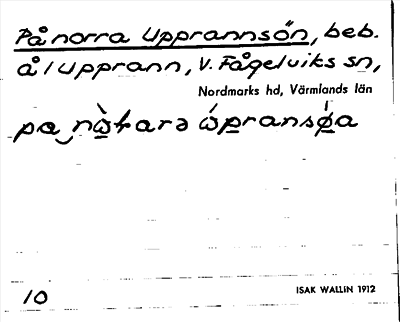 På norra Upprannsön, beb.
å / Upprann, V. Fågelviks sn,
Nordmarks hd, Värmlands län
10
ISAK WALLIN 1912